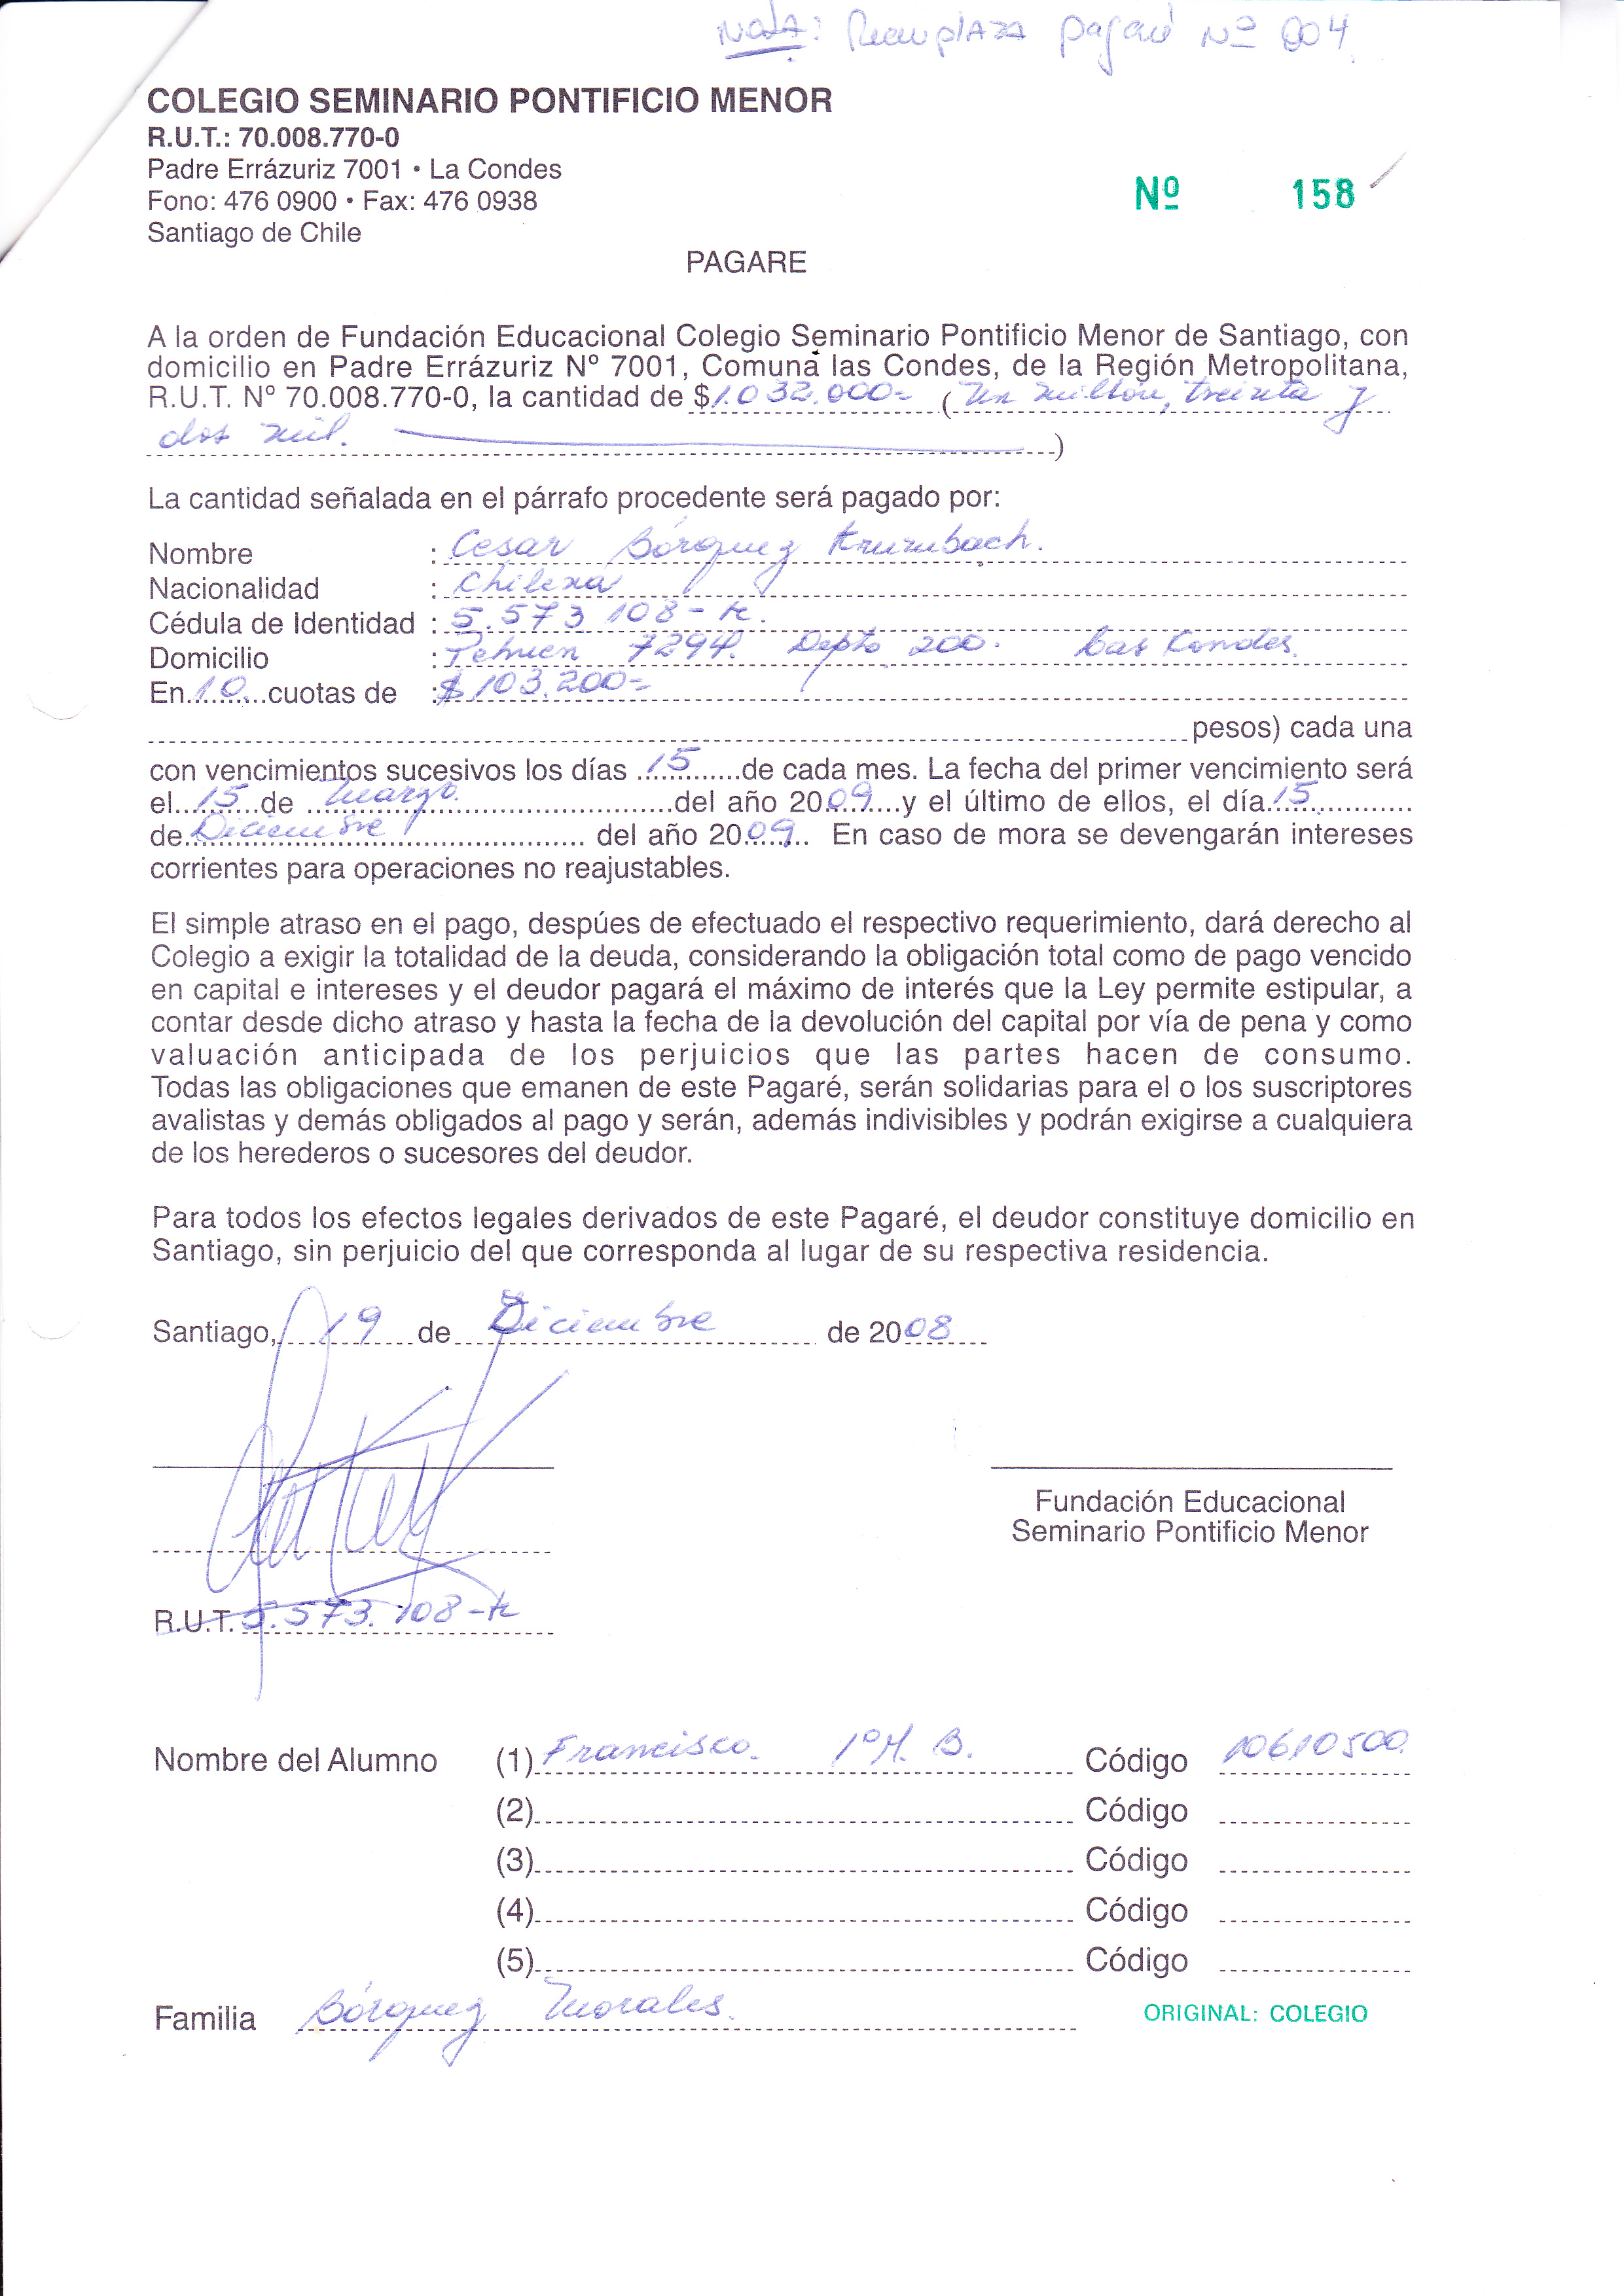 Nota: Reemplaza pagaré Nº 004
COLEGIO SEMINARIO PONTIFICIO MENOR
R.U.T.: 70.008.770-0
Padre Errázuriz 7001 • La Condes
Fono: 476 0900 • Fax: 476 0938
Santiago de Chile
Nº 158
PAGARE
A la orden de Fundación Educacional Colegio Seminario Pontificio Menor de Santiago, con
domicilio en Padre Errázuriz Nº 7001, Comuna las Condes, de la Región Metropolitana,
R.U.T. Nº 70.008.770-0, la cantidad de $ 1.032.000- ( Un millón, treinta y
dos mil. )
La cantidad señalada en el párrafo procedente será pagado por:
Nombre : Cesar Bórquez Krumbach.
Nacionalidad : Chilena
Cédula de Identidad : 5.573 108-K.
Domicilio : 7294. Depto 200. Las Condes.
En 10 cuotas de : $ 103.200-
pesos) cada una
con vencimientos sucesivos los días 15 de cada mes. La fecha del primer vencimiento será
el 15 de Marzo. del año 2009 y el último de ellos, el día 15
de Diciembre del año 2009. En caso de mora se devengarán intereses
corrientes para operaciones no reajustables.
El simple atraso en el pago, despúes de efectuado el respectivo requerimiento, dará derecho al
Colegio a exigir la totalidad de la deuda, considerando la obligación total como de pago vencido
en capital e intereses y el deudor pagará el máximo de interés que la Ley permite estipular, a
contar desde dicho atraso y hasta la fecha de la devolución del capital por vía de pena y como
valuación anticipada de los perjuicios que las partes hacen de consumo.
Todas las obligaciones que emanen de este Pagaré, serán solidarias para el o los suscriptores
avalistas y demás obligados al pago y serán, además indivisibles y podrán exigirse a cualquiera
de los herederos o sucesores del deudor.
Para todos los efectos legales derivados de este Pagaré, el deudor constituye domicilio en
Santiago, sin perjuicio del que corresponda al lugar de su respectiva residencia.
Santiago, 19 de Diciembre de 2008
Fundación Educacional
Seminario Pontificio Menor
R.U.T. 5.573.108-K
Nombre del Alumno (1) Francisco. 1ºM. B. Código 10610500
(2) Código
(3) Código
(4) Código
(5) Código
Familia Bórquez Morales.
ORIGINAL: COLEGIO